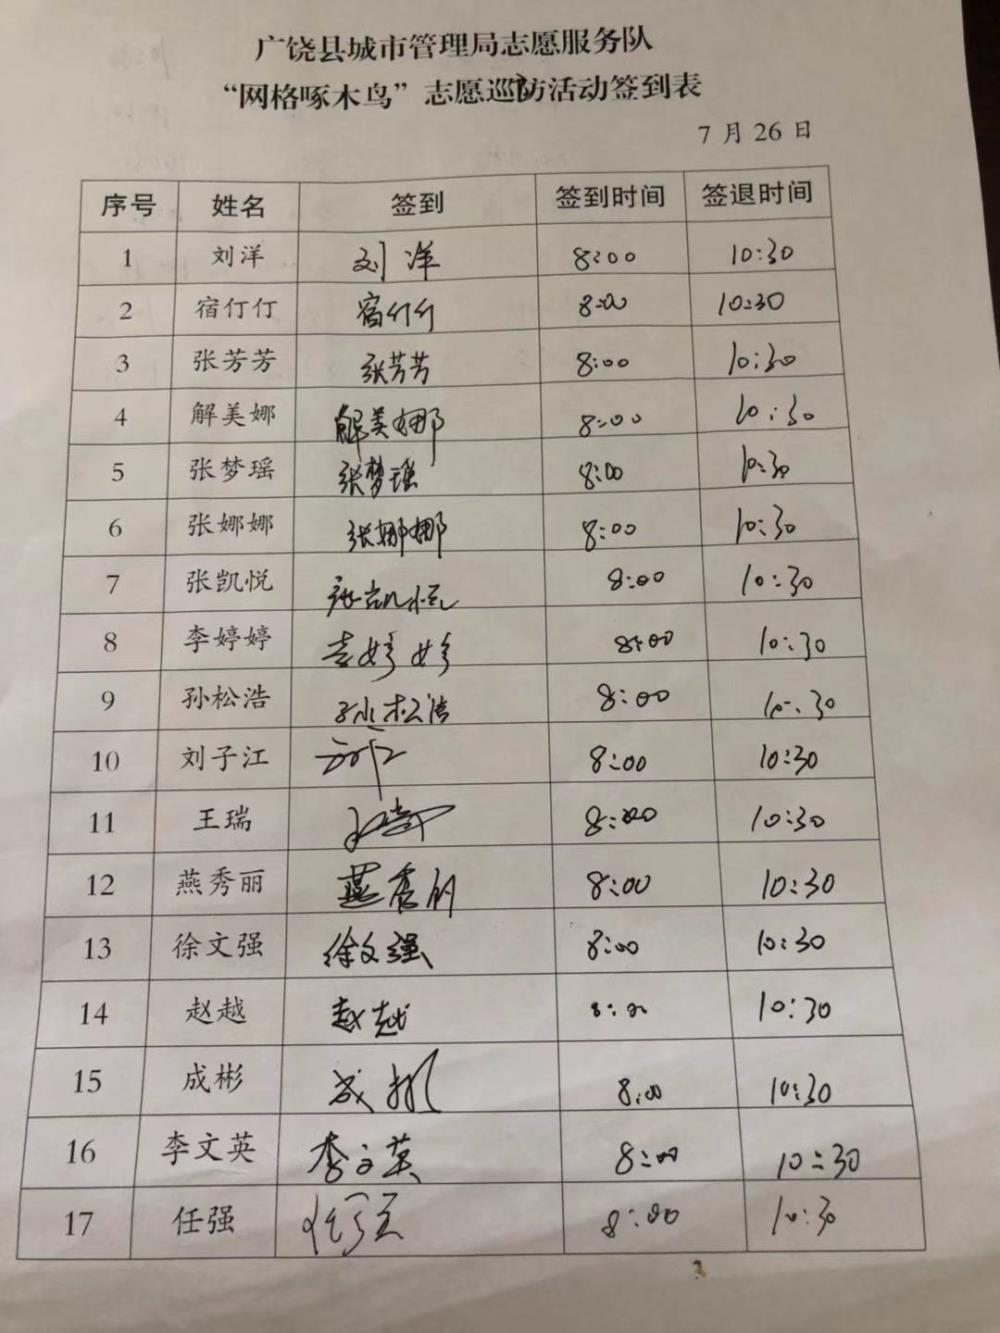 广饶县城市管理局志愿服务队
“网格啄木鸟”志愿巡防活动签到表
7月26日
序号 姓名 签到 签到时间 签退时间
1 刘洋 刘洋 8:00 10:30
2 宿仃仃 宿仃仃 8:00 10:30
3 张芳芳 张芳芳 8:00 10:30
4 解美娜 解美娜 8:00 10:30
5 张梦瑶 张梦瑶 8:00 10:30
6 张娜娜 张娜娜 8:00 10:30
7 张凯悦 张凯悦 8:00 10:30
8 李婷婷 李婷婷 8:00 10:30
9 孙松浩 孙松浩 8:00 10:30
10 刘子江 刘子江 8:00 10:30
11 王瑞 王瑞 8:00 10:30
12 燕秀丽 燕秀丽 8:00 10:30
13 徐文强 徐文强 8:00 10:30
14 赵越 赵越 8:00 10:30
15 成彬 成彬 8:00 10:30
16 李文英 李文英 8:00 10:30
17 任强 任强 8:00 10:30